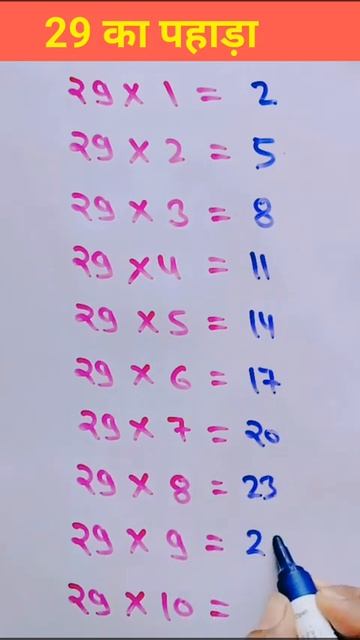 29 का पहाड़ा
29 × 1 = 2
29 × 2 = 5
29 × 3 = 8
29 × 4 = 11
29 × 5 = 14
29 × 6 = 17
29 × 7 = 20
29 × 8 = 23
29 × 9 = 2
29 × 10 =